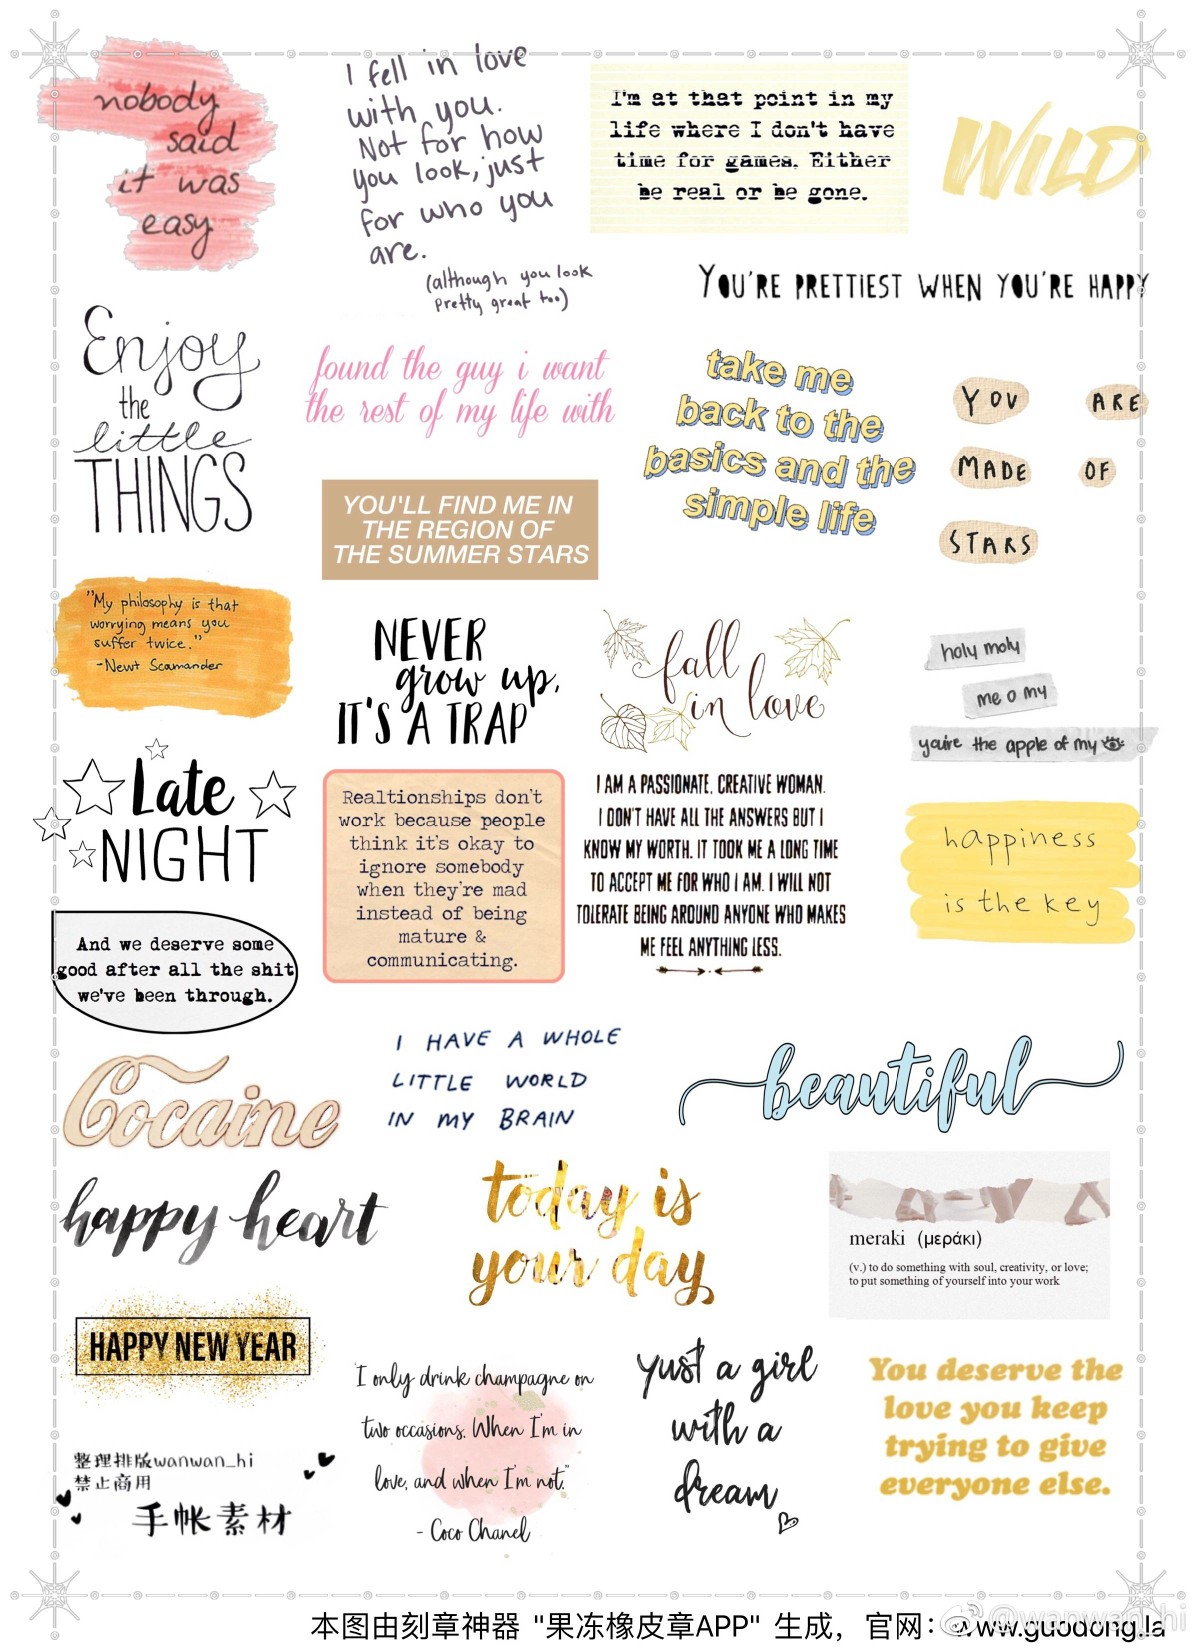 nobody
said
it was
easy
I fell in love
with you.
Not for how
you look, just
for who you
are.
(although you look
pretty great too)
I'm at that point in my
life where I don't have
time for games. Either
be real or be gone.
WILD
YOU'RE PRETTIEST WHEN YOU'RE HAPPY
Enjoy
the
little
THINGS
found the guy i want
the rest of my life with
take me
back to the
basics and the
simple life
YOU ARE
MADE OF
STARS
YOU'LL FIND ME IN
THE REGION OF
THE SUMMER STARS
"My philosophy is that
worrying means you
suffer twice."
-Newt Scamander
NEVER
grow up,
IT'S A TRAP
fall
in love
holy moly
me o my
you're the apple of my
Late
NIGHT
Realtionships don't
work because people
think it's okay to
ignore somebody
when they're mad
instead of being
mature &
communicating.
I AM A PASSIONATE, CREATIVE WOMAN.
I DON'T HAVE ALL THE ANSWERS BUT I
KNOW MY WORTH. IT TOOK ME A LONG TIME
TO ACCEPT ME FOR WHO I AM. I WILL NOT
TOLERATE BEING AROUND ANYONE WHO MAKES
ME FEEL ANYTHING LESS.
happiness
is the key
And we deserve some
good after all the shit
we've been through.
Cocaine
I HAVE A WHOLE
LITTLE WORLD
IN MY BRAIN
beautiful
happy heart
today is
your day
meraki (μεράκι)
(v.) to do something with soul, creativity, or love;
to put something of yourself into your work
HAPPY NEW YEAR
"I only drink champagne on
two occasions. When I'm in
love, and when I'm not."
- Coco Chanel
yust a girl
with a
dream
You deserve the
love you keep
trying to give
everyone else.
整理排版wanwan_hi
禁止商用
手帐素材
@wanwan_hi
本图由刻章神器 "果冻橡皮章APP" 生成，官网：www.guodong.la